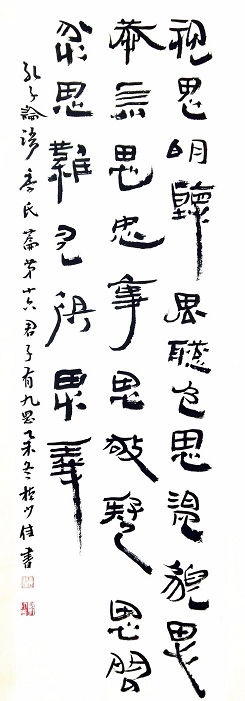 視思明聽思聰色思溫貌思
恭言思忠事思敬疑思問
忿思難見得思義
孔子論語季氏篇第十六君子有九思乙未冬書